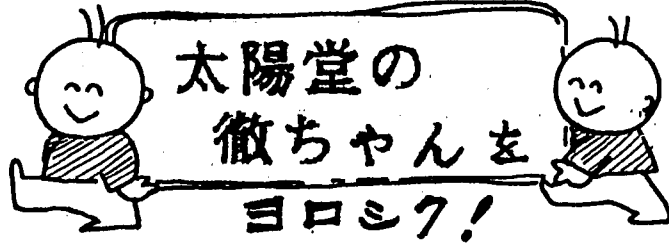 太陽堂の
徹ちゃんを
ヨロシク!